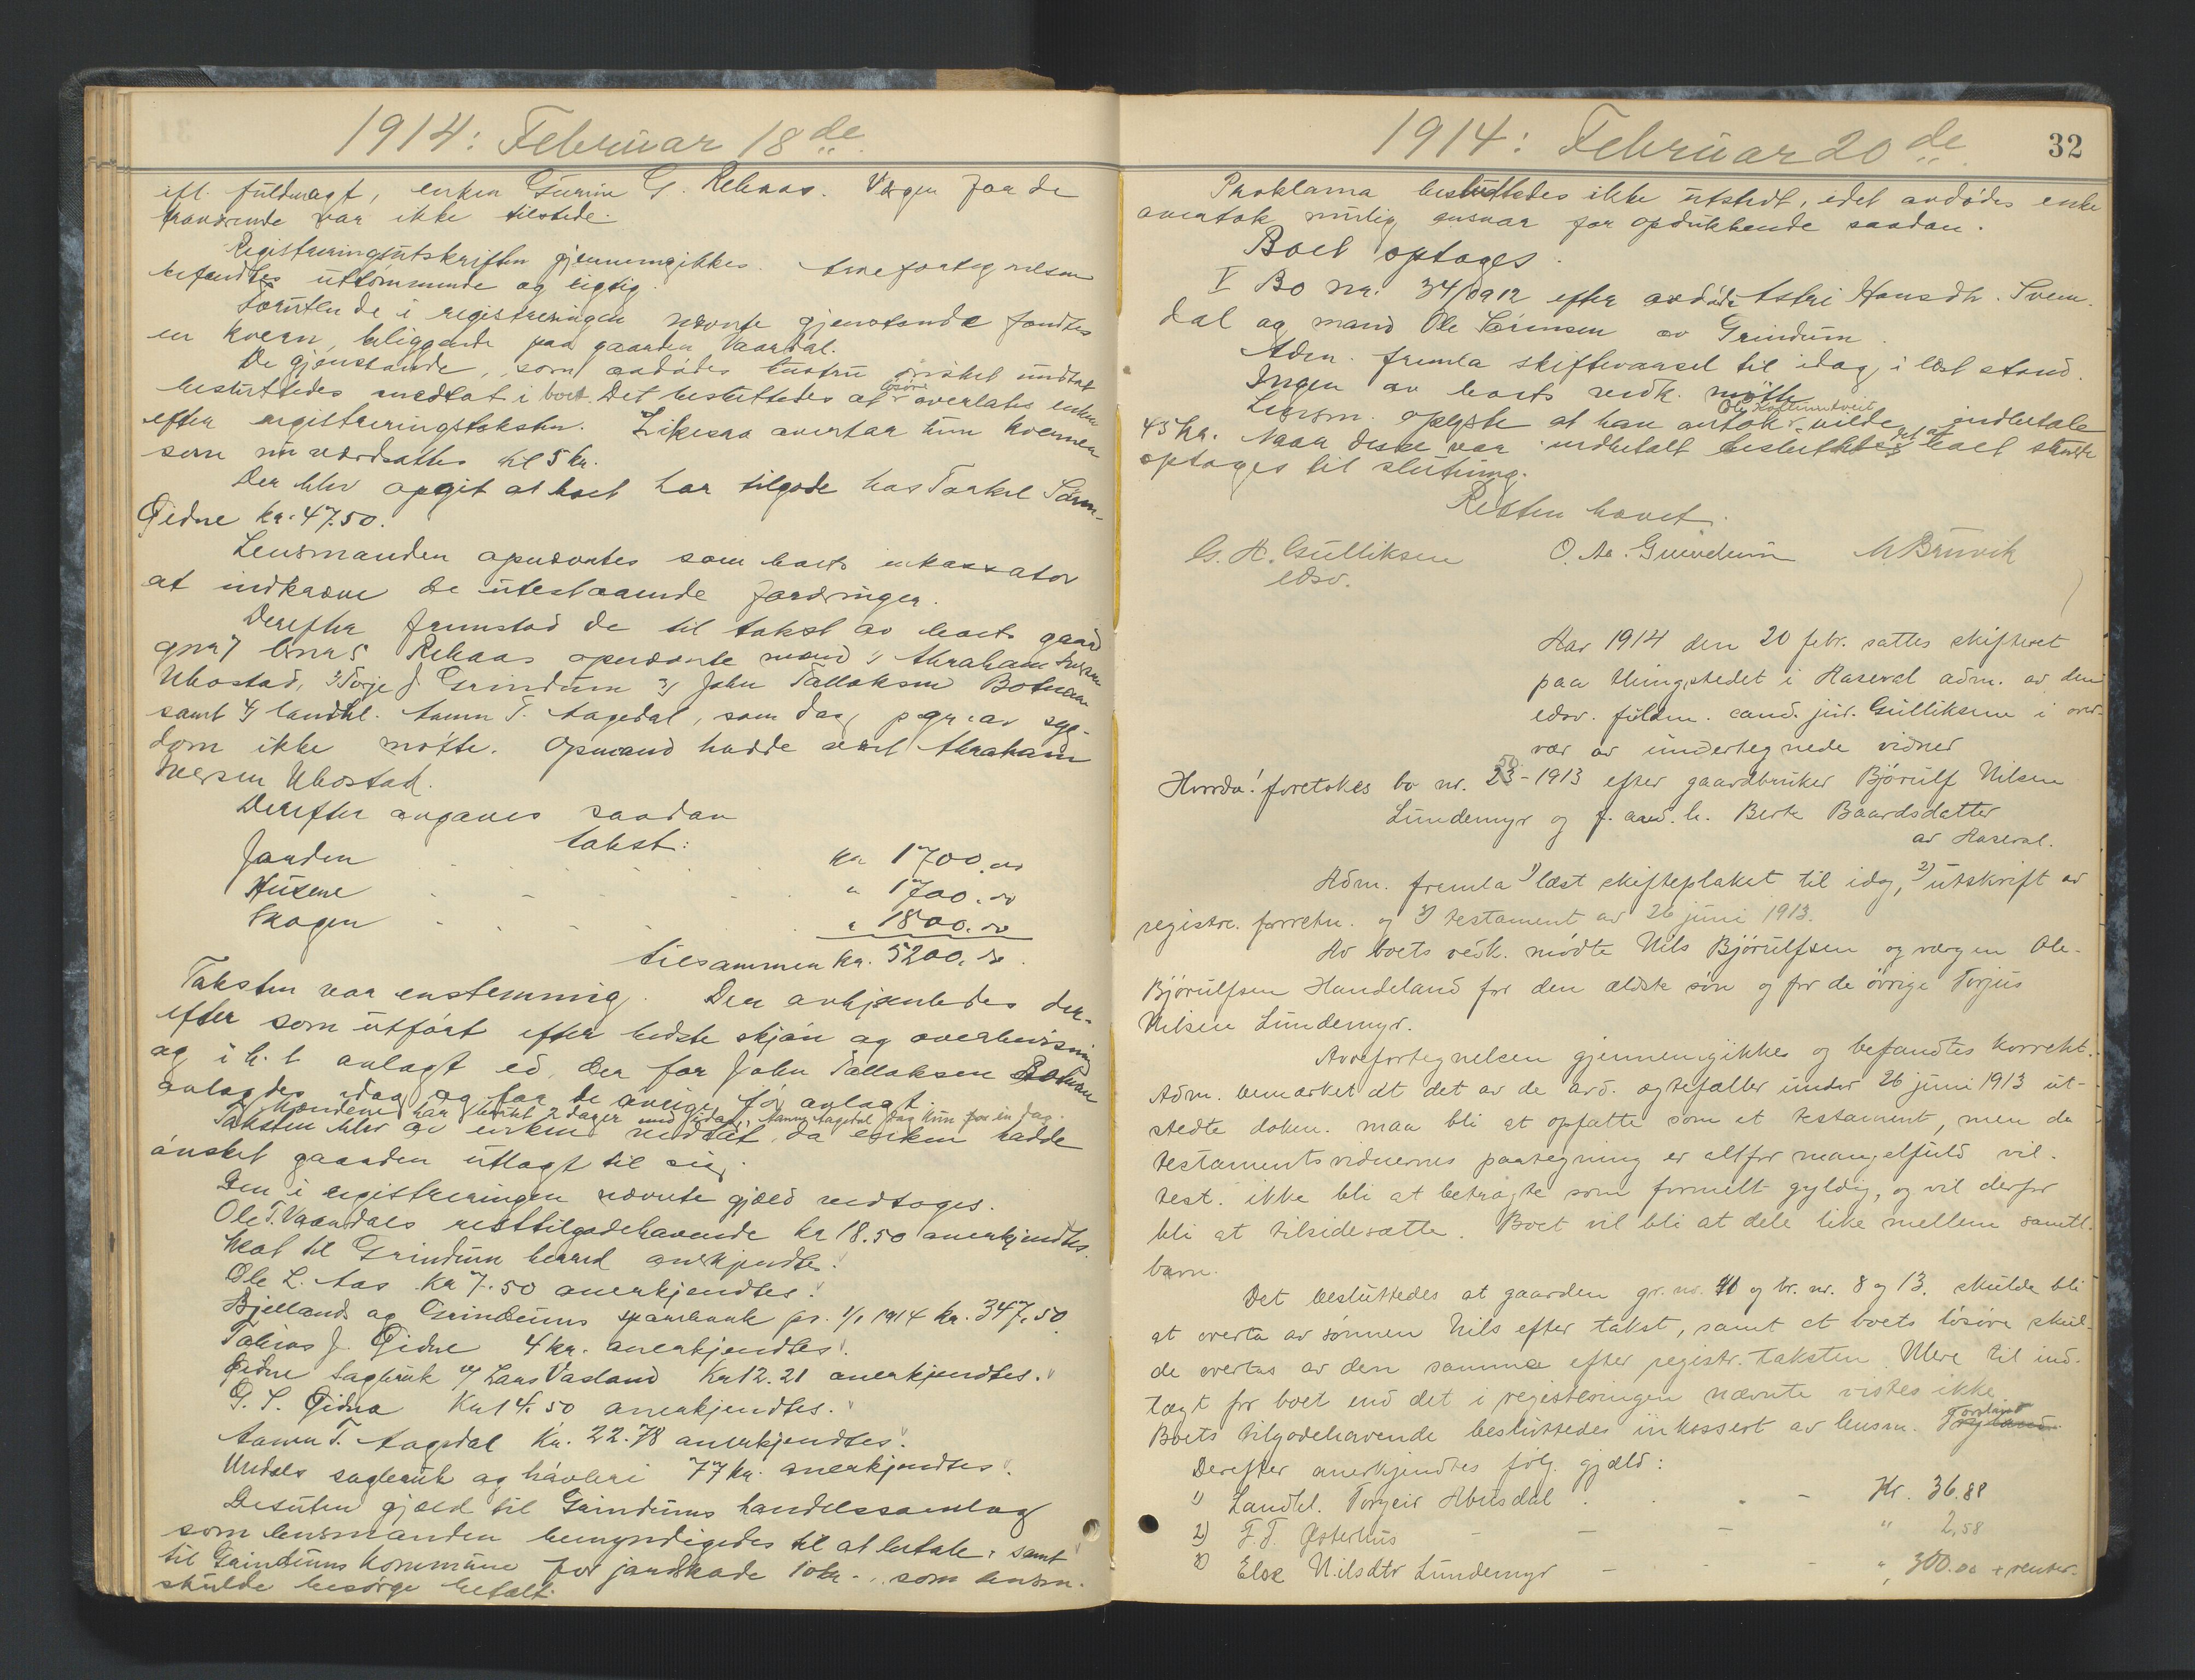 1914: Februar 18de
ifl. fuldmagt, enken Gurine G. Rehaas. Vergen for de
fraværende var ikke tilstede.
Registreringsutskriften gjennemgikkes. Arvefortegnelsen
befandtes uttömmende og rigtig.
Foruten de i registreringen nævnte gjenstande fandtes
en kvern, beliggende paa gaarden Vaardal.
De gjenstande, som avdödes hustru önsket undtat
besluttedes medtat i boet. Det besluttedes at lösöre overlates enken
efter registreringstaksten. Likesaa overtar hun kvernen
som nu værdsattes til 5 kr.
Der blev opgit at boet har tilgode hos Tarkel Sören-
Öidne kr. 47.50.
Lensmanden opnævntes som boets inkassator
at indkræve de utestaaende fordringer.
Derefter fremstod de til takst av boets gaard
gnr 7 bnr 5 Rehaas opnævnte mænd 1) Abraham Iversen
Ubostad, 2) Torje J. Grindum 3) John Tallaksen Botnan
samt 4) landhl. Aanen T. Aagedal, som dog p. gr. av syg-
dom ikke mötte. Opmand hadde været Abraham
Iversen Ubostad.
Derefter avgaves saadan
takst:
Jorden kr 1700.00
Husene " 1700.00
Skogen " 1800.00
tilsammen kr. 5200.00
Taksten var enstemmig. Den avhjemledes der-
efter som utfört efter bedste skjön og overbevisning
og i h. t. avlagt ed, der for John Tallaksen Botnan
avlagdes idag og for de övrige för avlagt.
Mændene har brukt 2 dager med idag, Aanen Aagedal dog kun for en dag.
Taksten blev av enken vedtat, da enken hadde
önsket gaarden utlagt til sig.
Den i registreringen nævnte gjæld vedtoges.
Ole T. Vaardals resttilgodehavende kr 18.50 anerkjendtes.
Skat til Grindum herred anerkjendtes.
Ole L. Aas kr 7.50 anerkjendtes.
Bjelland og Grindums sparebank pr. 1/1 1914 kr. 347.50
Tobias J. Öidne 4 kr. anerkjendtes.
Öidne sagbruk v/ Lars Vasland Kr 12.21 anerkjendtes.
G. S. Öidna Kr 14.50 anerkjendtes.
Aanen T. Aagedal Kr. 22.78 anerkjendtes.
Undals sagbruk og hövleri 77 kr. anerkjendtes.
Desuten gjæld til Grindums handelssamlag
som lensmanden bemyndigedes til at betale, samt
til Grindums kommune for jordskade 10 kr. som lensm.
skulde besörge betalt.
1914: Februar 20de
32
Proklama besluttedes ikke utstedt, idet avdödes enke
overtok mulig ansvar for opdukkende saadan.
Boet optages.
V Bo nr. 34/1912 efter avdöde Astri Hansdtr. Svein-
dal og mand Ole Sörensen av Grindum.
Adm. fremla skiftevarsel til idag i læst stand.
Ingen av boets vedk. mötte.
Lensm. oplyste at han antok Ole Kostveit vilde indbetale
45 kr. Naar disse var indbetalt besluttedes at boet skulde
optages til slutning.
Retten hævet.
G. H. Gulliksen O. Aa. Grundum M Bruvik
edsv.
Aar 1914 den 20 febr. sattes skifteret
paa thingstedet i Aaseral adm. av den
edsv. fuldm. cand. jur. Gulliksen i over-
vær av undertegnede vidner
Hvorda! foretokes bo nr. 23-1913 efter gaardbruker Björulf Nilsen
Lundemyr og f. avd. h. Berte Baardsdatter
av Aaseral.
Adm. fremla 1) læst skifteplakat til idag, 2) utskrift av
registr. forretn. og 3) testament av 26 juni 1913.
Av boets vedk. mödte Nils Björulfsen og vergen Ole
Björulfsen Handeland for den ældste sön og for de övrige Torjus
Nilsen Lundemyr.
Arvefortegnelsen gjennemgikkes og befandtes korrekt.
Adm. bemærket at det av de avd. ægtefæller under 26 juni 1913 ut-
stedte dokum. maa bli at opfatte som et testament, men da
testamentsvidnernes paategning er altfor mangelfuld vil
test. ikke bli at betragte som formelt gyldig, og vil derfor
bli at tilsidesætte. Boet vil bli at dele like mellem samtl.
barn.
Det besluttedes at gaarden gr. nr. 11 og br. nr. 8 og 13. skulde bli
at overta av sönnen Nils efter takst, samt at boets lösöre skul-
de overtas av den samme efter registr. taksten. Mere til ind-
tægt for boet end det i registreringen nævnte vistes ikke.
Boets tilgodehavende besluttedes inkassert av lensm. Torsland
Derefter anerkjendtes fölg. gjæld:
1) Landhl. Torgeir Abusdal Kr. 36.88
2) F. T. Österhus " 2,58
3) Else Nilsdtr Lundemyr " 300.00 + renter.